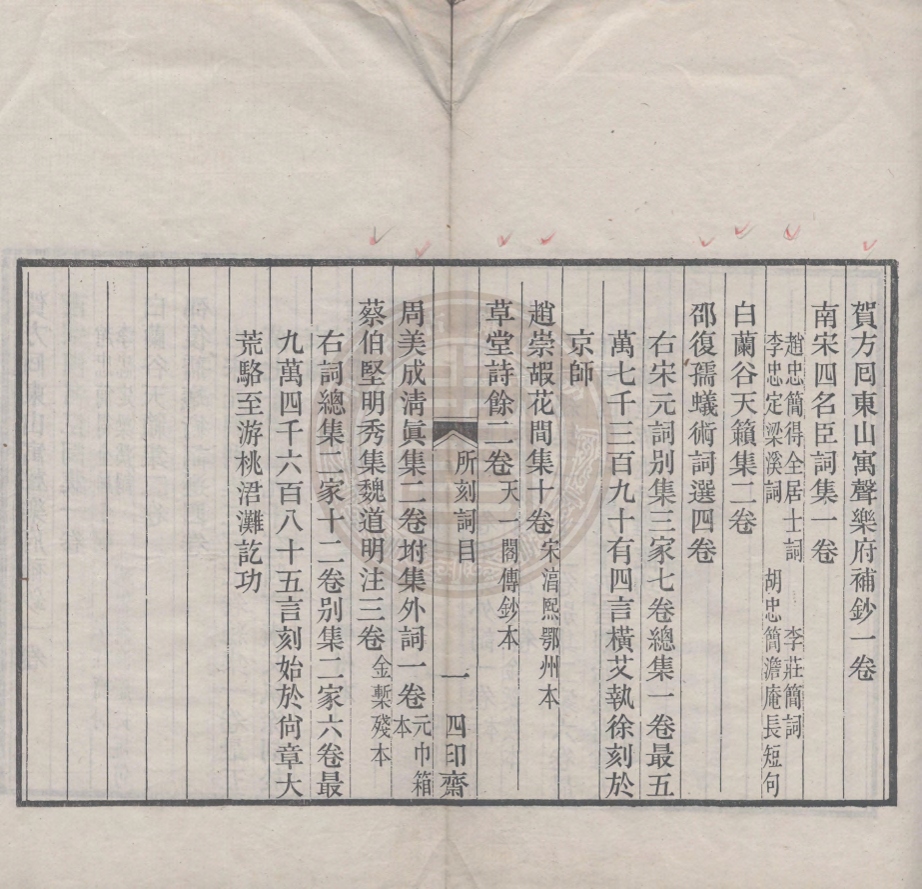 賀方回東山寓聲樂府補鈔一卷
南宋四名臣詞集一卷
趙忠簡得全居士詞　李莊簡詞
李忠定梁溪詞　胡忠簡澹庵長短句
白蘭谷天籟集二卷
邵復孺蟻術詞選四卷
右宋元詞别集三家七卷總集一卷最五
萬七千三百九十有四言橫艾執徐刻於
京師
趙崇嘏花間集十卷宋湻熙鄂州本
草堂詩餘二卷天一閣傳鈔本
所刻詞目　一　四印齋
周美成淸眞集二卷坿集外詞一卷元巾箱本
蔡伯堅明秀集魏道明注三卷金槧殘本
右詞總集二家十二卷别集二家六卷最
九萬四千六百八十五言刻始於尙章大
荒駱至游桃涒灘訖功